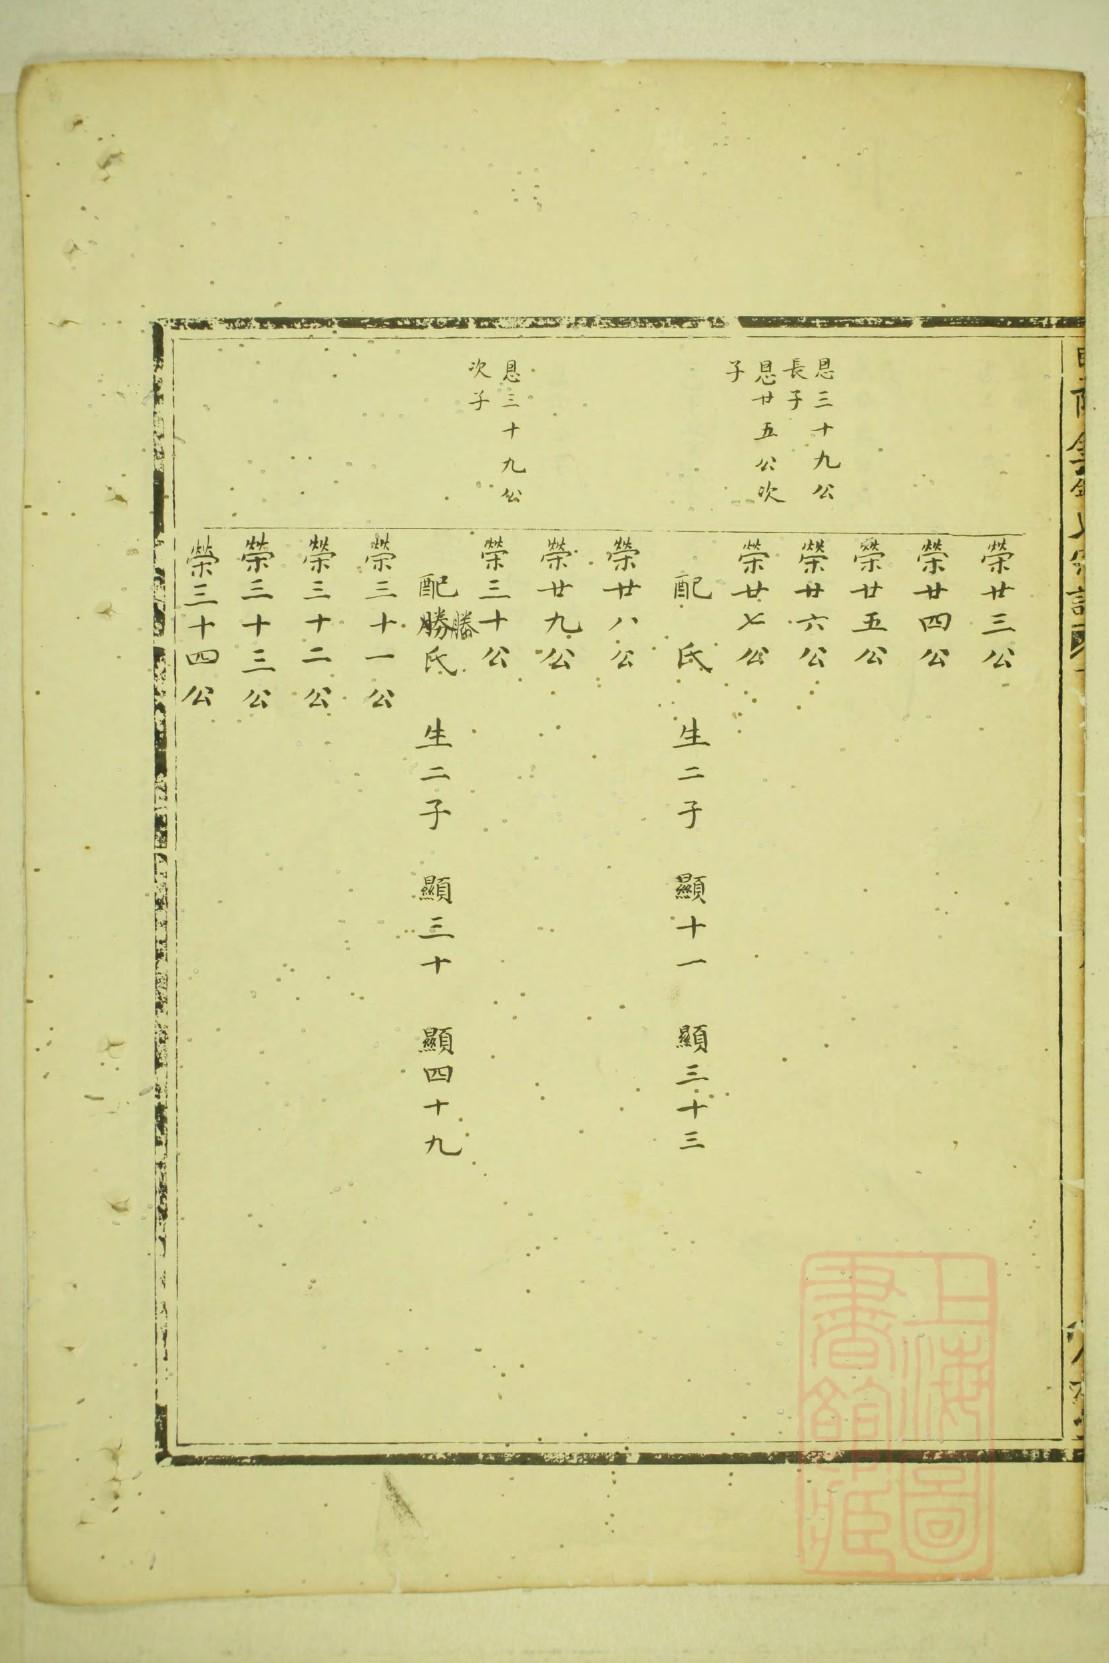 榮廿三公
榮廿四公
榮廿五公
恩三十九公
長子
榮廿六公
恩廿五公次
子
榮廿七公
配 氏 生二子 顯十一 顯三十三
榮廿八公
榮廿九公
恩三十九公
次子
榮三十公
配勝氏 生二子 顯三十 顯四十九
滕
榮三十一公
榮三十二公
榮三十三公
榮三十四公
上海圖
書館藏